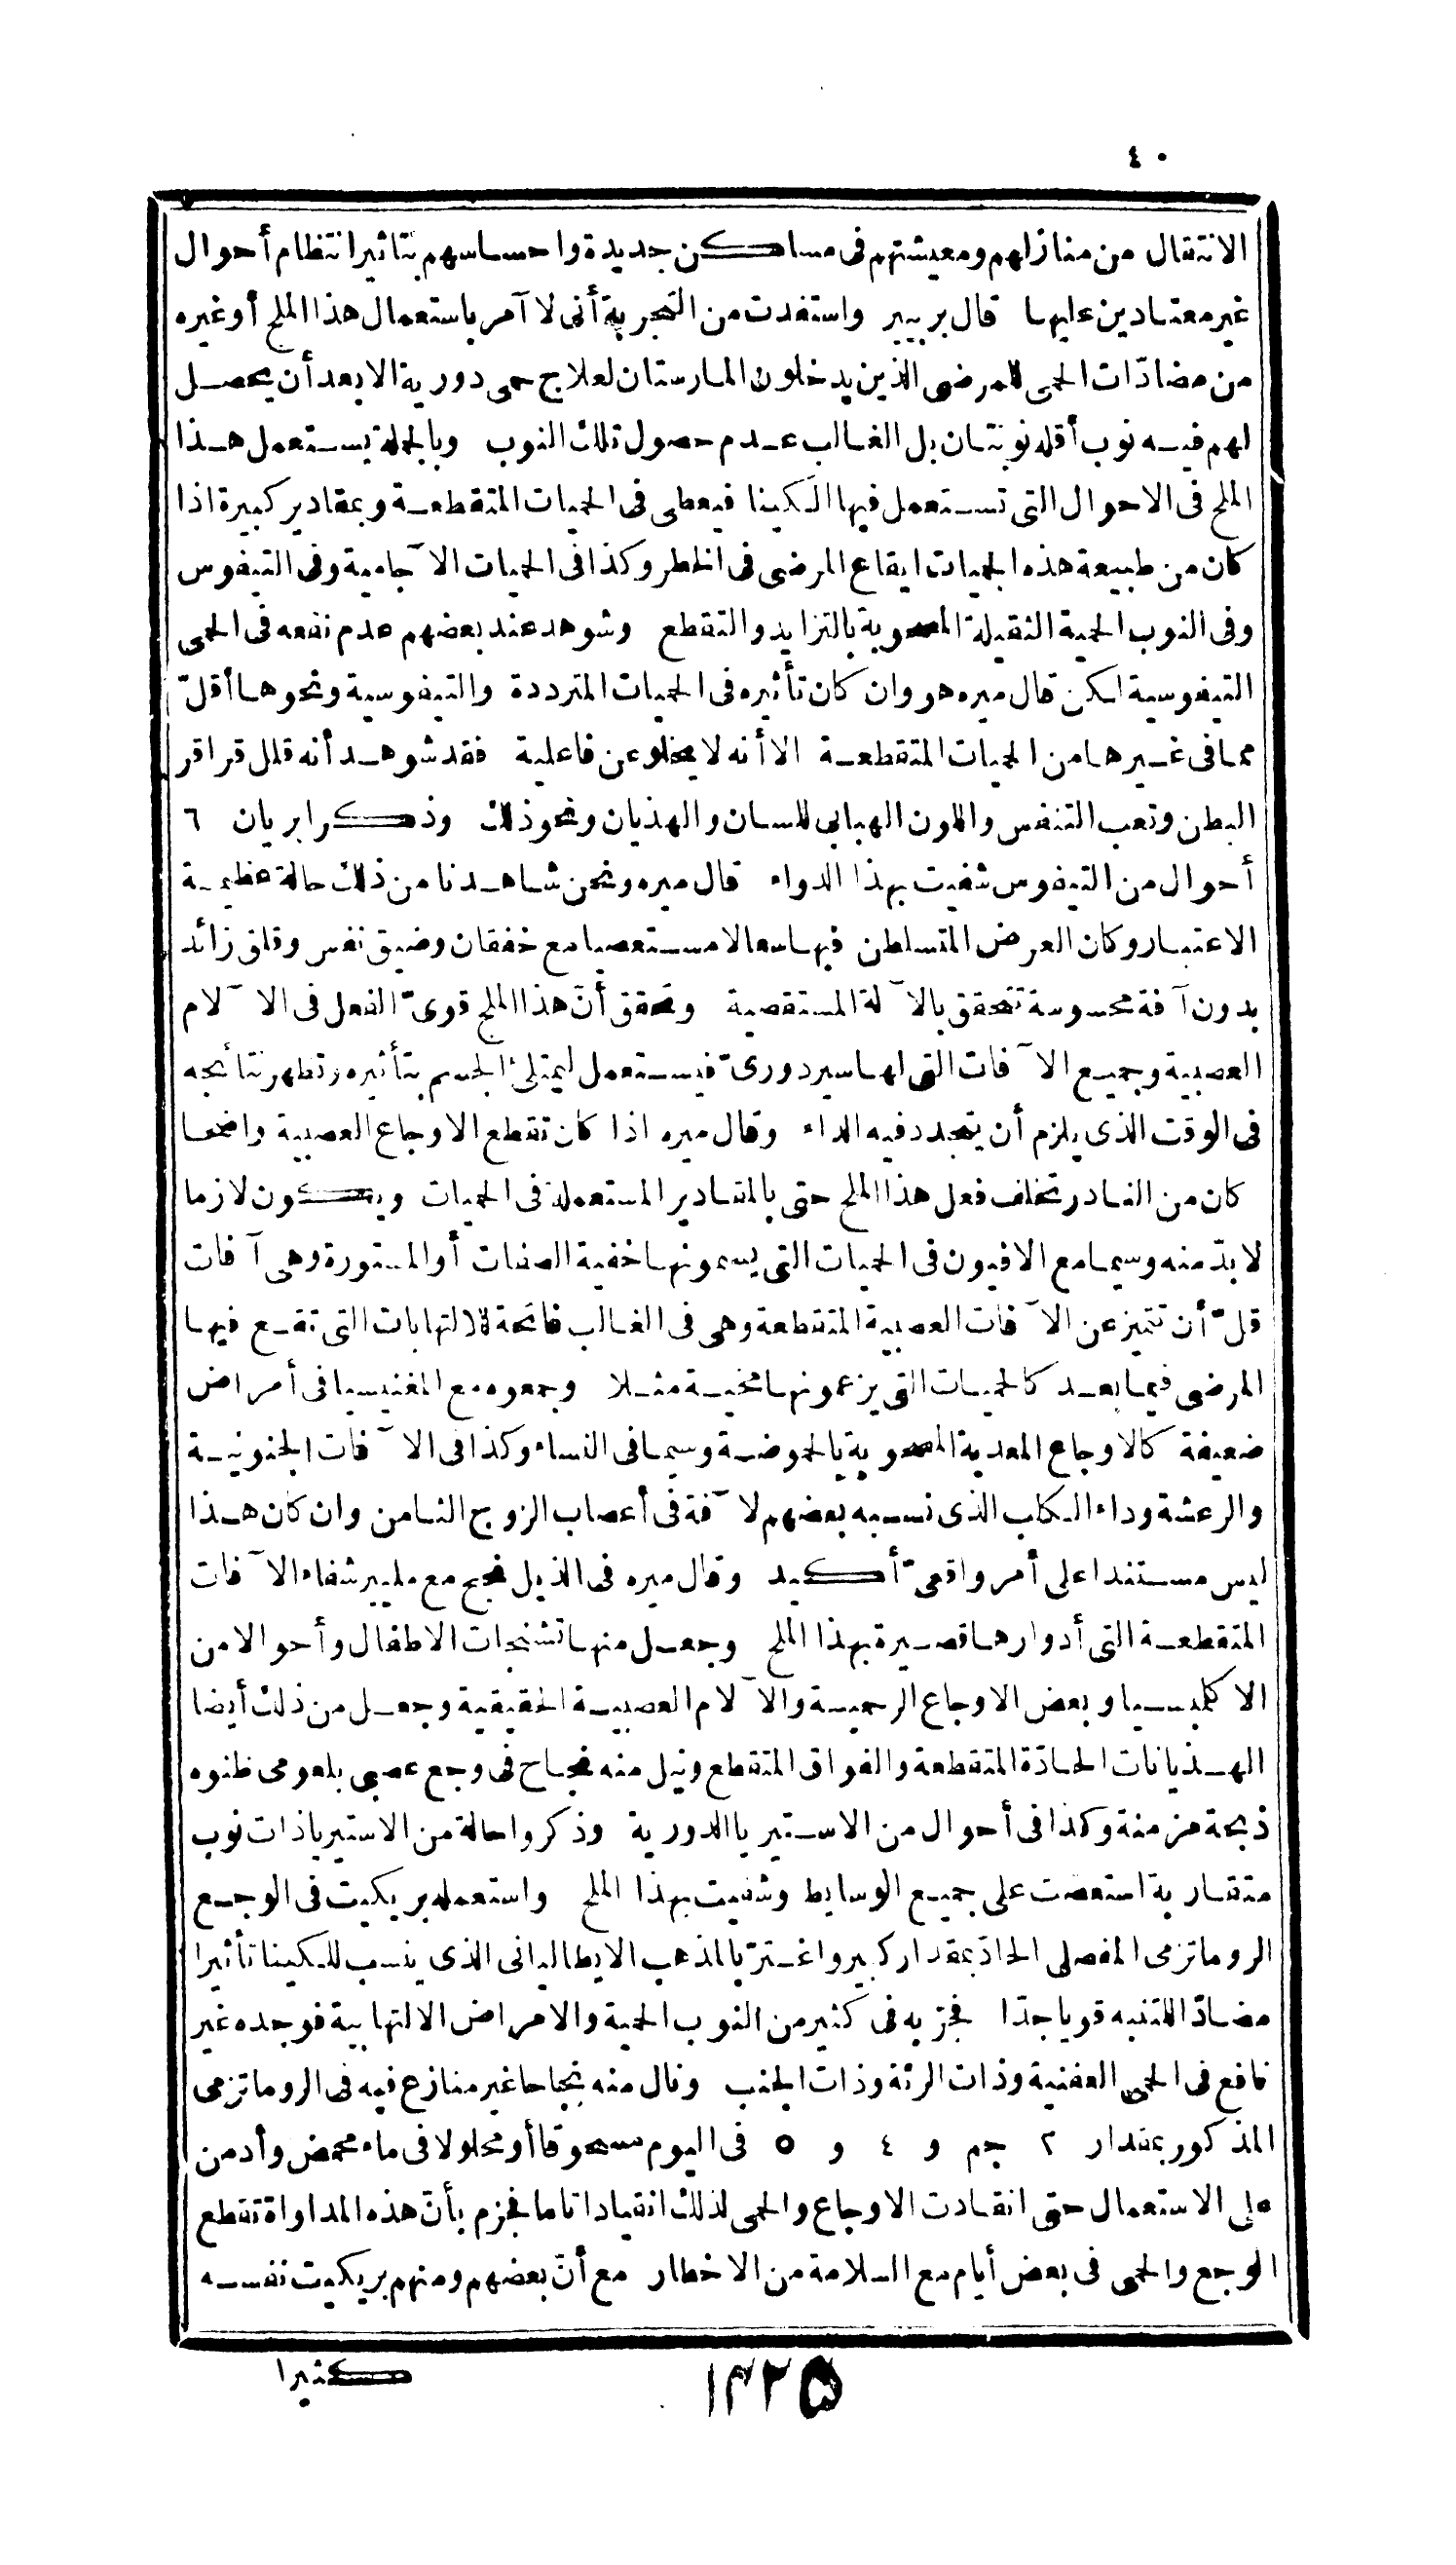 ٤٠
الانتقال من منازلهم ومعيشتهم فى مساكن جديدة واحساسهم بتاثير انتظام أحوال
غير معتادين عليها قال بربيير واستفدت من التجربة أنى لا آمر باستعمال هذا الملح أو غيره
من مضادّات الحمى للمرضى الذين يدخلون المارستان لعلاج حمى دورية الا بعد أن يحصل
لهم فيه نوب أقله نوبتان بل الغالب عدم حصول تلك النوب وبالجملة يستعمل هذا
الملح فى الاحوال التى تستعمل فيها الكينا فيعطى فى الحميات المتقطعة وبمقادير كبيرة اذا
كان من طبيعة هذه الحميات ايقاع المرضى فى الخطر وكذا فى الحميات الآجامية وفى التيفوس
وفى النوب الحمية الثقيلة المصحوبة بالتزايد والتقطع وشوهد عند بعضهم عدم نفعه فى الحمى
التيفوسية لكن قال ميره هو وان كان تأثيره فى الحميات المترددة والتيفوسية ونحوها أقلّ
مما فى غيرها من الحميات المتقطعة الا أنه لا يخلو عن فاعلية فقد شوهد أنه قلل قراقر
البطن وتعب التنفس واللون الهبابى للسان والهذيان ونحو ذلك وذكر ابريان ٦
أحوال من التيفوس شفيت بهذا الدواء قال ميره ونحن شاهدنا من ذلك حالة عظيمة
الاعتبار وكان العرض المتسلطن فيها سعالا مستعصيا مع خفقان وضيق نفس وقلق زائد
بدون آفة محسوسة تتحقق بالآلة المستقصية وتحقق أنّ هذا الملح قوىّ الفعل فى الآلام
العصبية وجميع الآفات التى لها سير دورىّ فيستعمل ليمتلئ الجسم بتأثيره وتظهر نتائجه
فى الوقت الذى يلزم أن يتجدد فيه الداء وقال ميره اذا كان تقطع الاوجاع العصبية واضحا
كان من النادر تخلف فعل هذا الملح حتى بالمقادير المستعملة فى الحميات ويكون لازما
لا بدّ منه وسيما مع الافيون فى الحميات التى يسمونها خفية الصفات أو المستورة وهى آفات
قلّ أن تتميز عن الآفات العصبية المتقطعة وهى فى الغالب فاتحة للالتهابات التى تقع فيها
المرضى فيما بعد كالحميات التى يزعمونها مخية مثلا وجمعوه مع المغنيسيا فى أمراض
ضعيفة كالاوجاع المعدية المصحوبة بالحموضة وسيما فى النساء وكذا فى الآفات الجنونية
والرعشة وداء الكلب الذى نسبه بعضهم لآفة فى أعصاب الزوج الثامن وان كان هذا
ليس مستندا على أمر واقعىّ أكيد وقال ميره فى الذيل نجح مع مليير شفاء الآفات
المتقطعة التى أدوارها قصيرة بهذا الملح وجعل منها تشنجات الاطفال وأحوالا من
الاكلمبسيا وبعض الاوجاع الرحمية والآلام العصبية الحقيقية وجعل من ذلك أيضا
الهذيانات الحادّة المتقطعة والفواق المتقطع ونيل منه نجاح فى وجع عصبى بلعومى ظنوه
ذبحة مزمنة وكذا فى أحوال من الاستيريا الدورية وذكروا حالة من الاستيريا ذات نوب
متقاربة استعصت على جميع الوسايط وشفيت بهذا الملح واستعمله بريكيت فى الوجع
الروماتزمى المفصلى الحادّ بمقدار كبير واغترّ بالمذهب الايطاليانى الذى ينسب للكينا تأثيرا
مضادّا للتنبه قويا جدّا فجرّبه فى كثير من النوب الحمية والامراض الالتهابية فوجده غير
نافع فى الحمى العفنية وذات الرئة وذات الجنب ونال منه نجاحا غير منازع فيه فى الروماتزمى
المذكور بمقدار ٢ جم و ٤ و ٥ فى اليوم مسحوقا أو محلولا فى ماء محمض وأدمن
على الاستعمال حتى انقادت الاوجاع والحمى لذلك انقيادا تاما فجزم بأنّ هذه المداواة تقطع
الوجع والحمى فى بعض أيام مع السلامة من الاخطار مع أنّ بعضهم ومنهم بريكيت نفسه
كثيرا
١٣٢٥